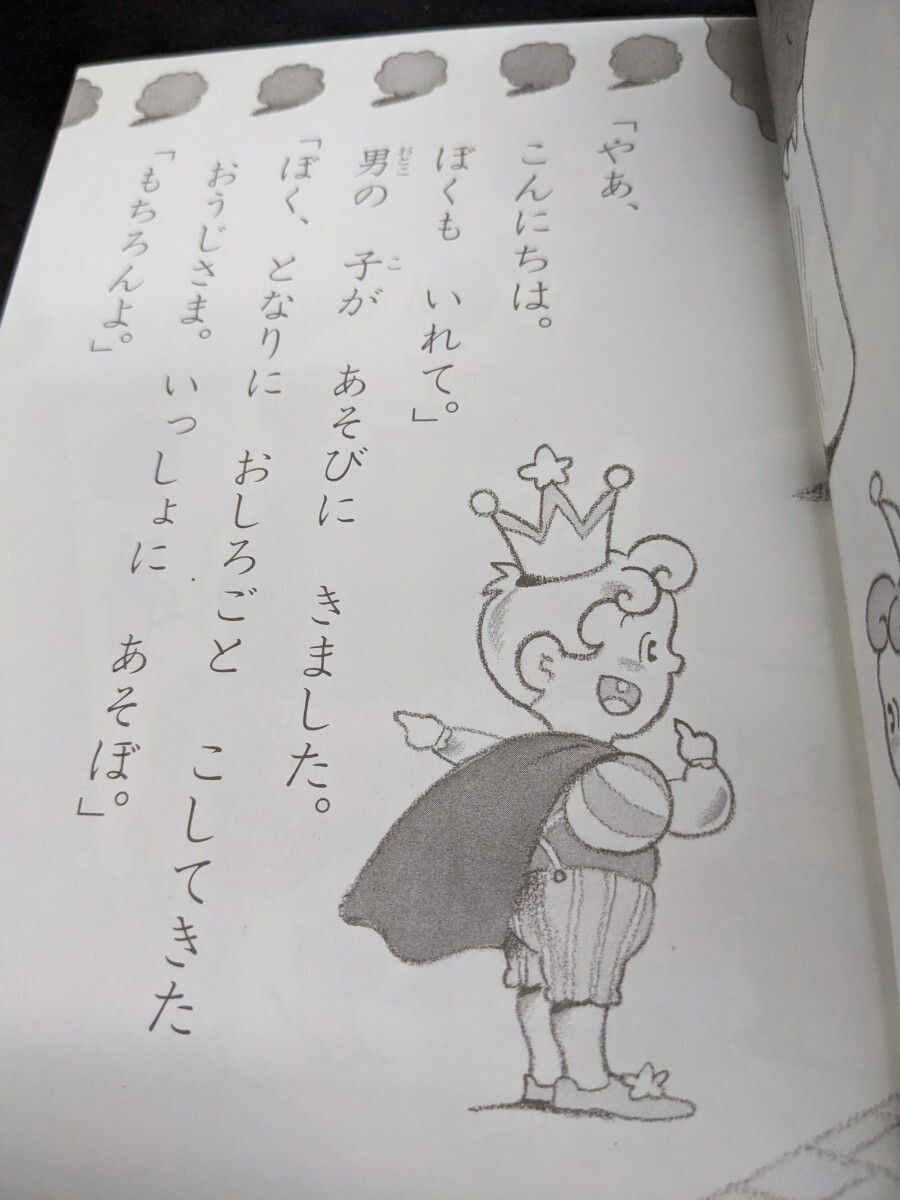 「やあ、
こんにちは。
ぼくも いれて。」
男の 子が あそびに きました。
「ぼく、となりに おしろごと こしてきた
おうじさま。いっしょに あそぼ。」
「もちろんよ。」